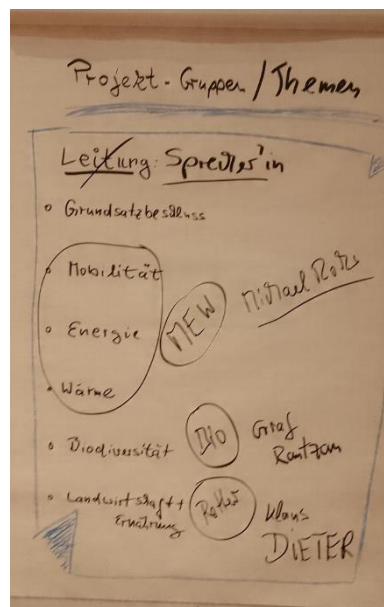 Projekt-Gruppen / Themen
Leitung: Sprecher'in
Grundsatzbeschluss
Mobilität
Energie
MEW
Michael
Wärme
Biodiversität
Graf
Rantzau
Landwirtschaft +
Ernährung
Klaus
DIETER